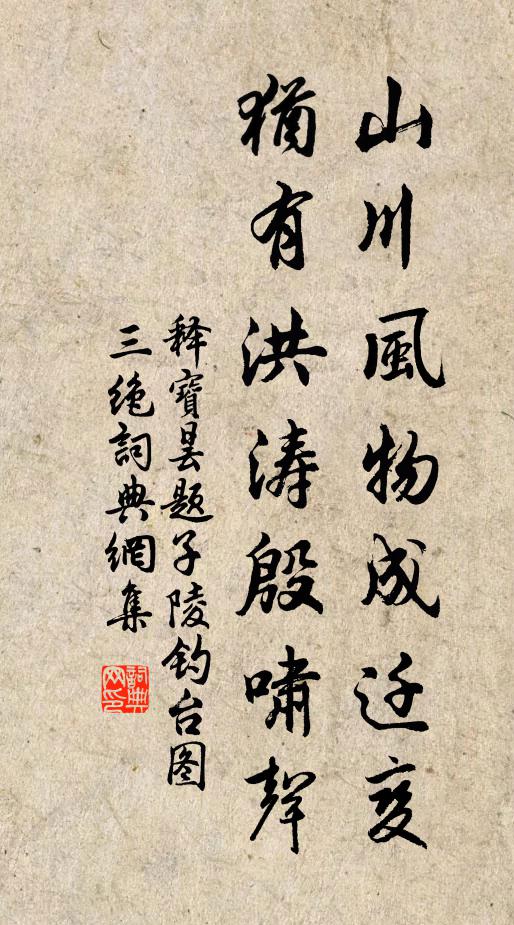 山川風物成迁变
猶有洪涛殷嘯聲
释寶昙题子陵钓台图
三绝詞典網集
詞典网印